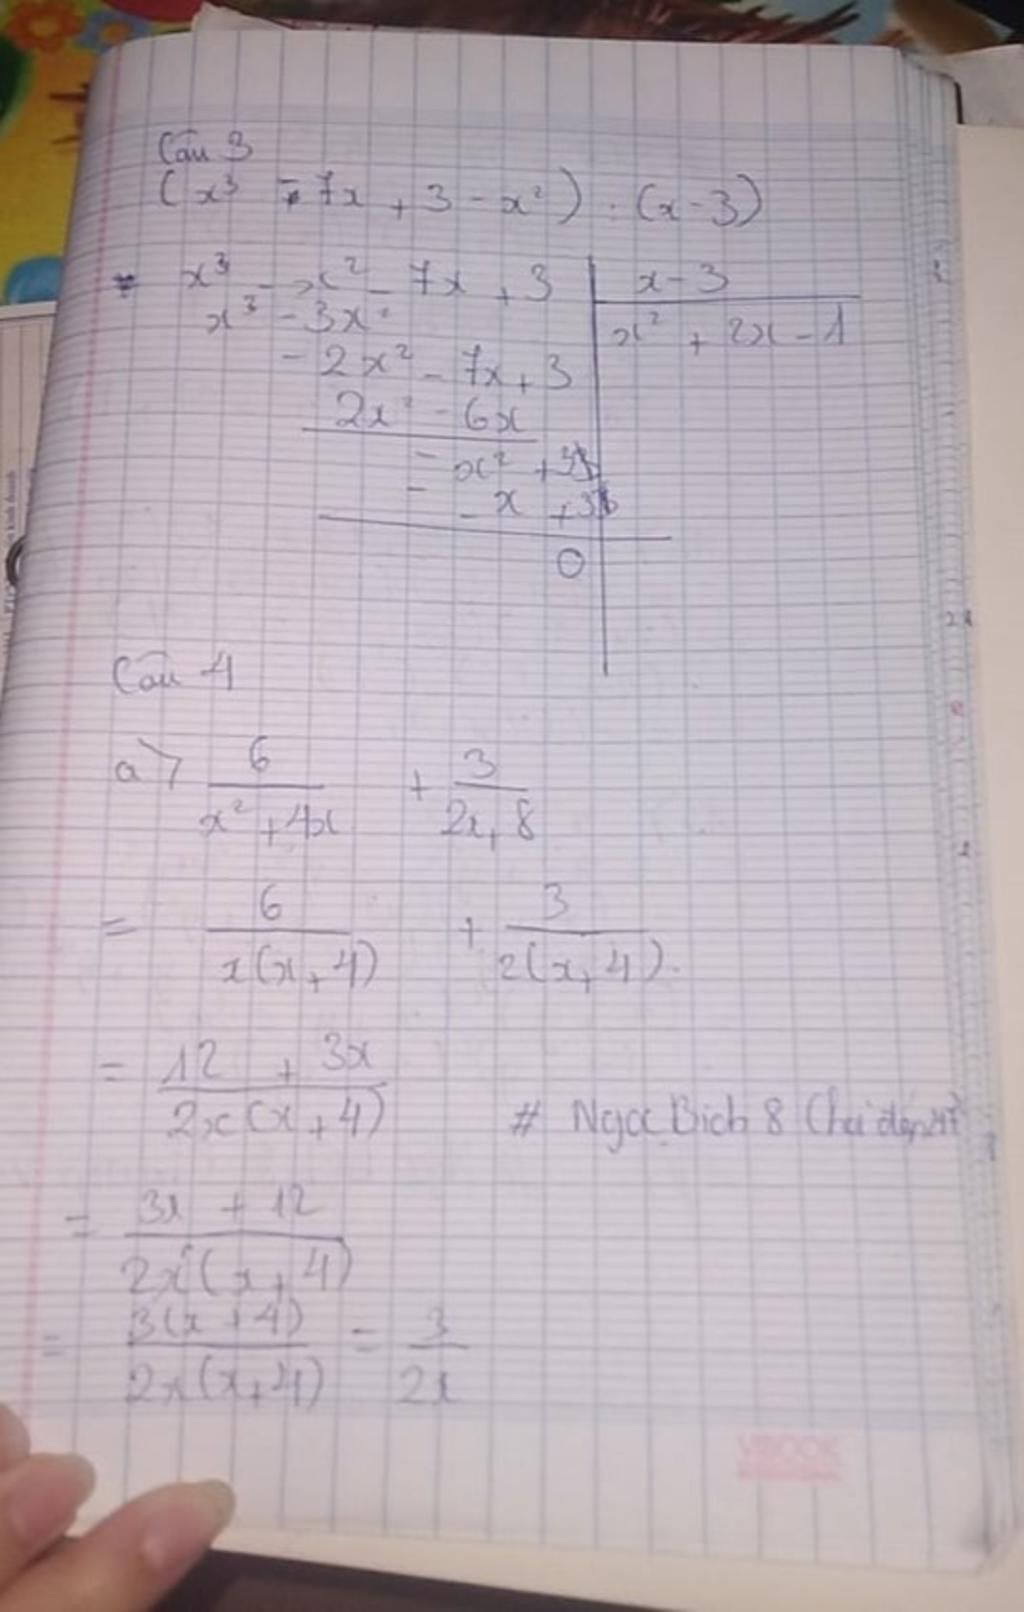 Câu 3
(x³ - 7x + 3 - x²) : (x - 3)
x³ - x² - 7x + 3 | x - 3
x³ - 3x² | x² + 2x - 1
- 2x² - 7x + 3
2x² - 6x
- x² + 3
- - x + 3
0
Câu 4
a> 6/(x² + 4x) + 3/(2x + 8)
= 6/(x(x + 4)) + 3/(2(x + 4)).
= (12 + 3x)/(2x(x + 4))
# Ngọc Bích 8
= (3x + 12)/(2x(x + 4))
= 3(x + 4)/(2x(x + 4)) = 3/(2x)
VBOOK